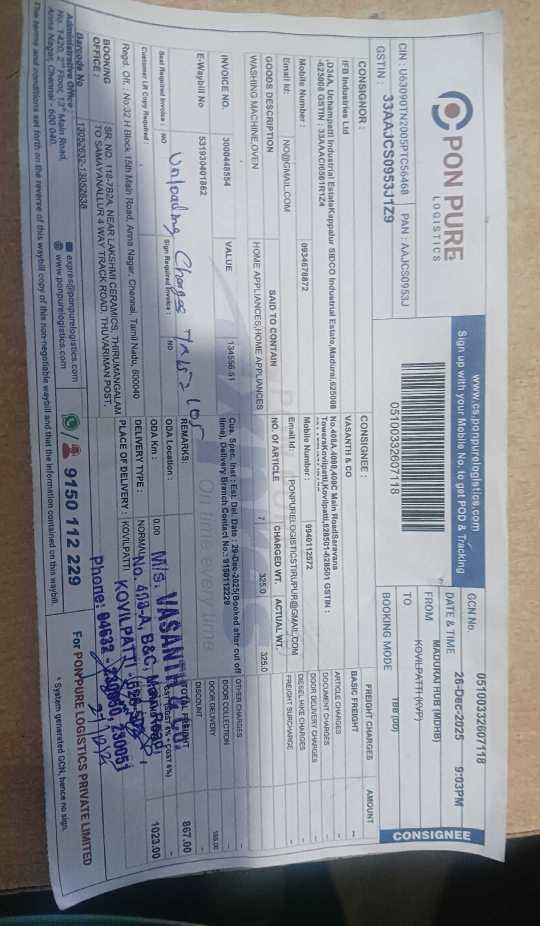 PON PURE
LOGISTICS
www.cs.ponpurelogistics.com
Sign up with your Mobile No. to get POD & Tracking
CIN : U63090TN2005PTC56468 PAN : AAJCS0953J
GSTIN : 33AAJCS0953J1Z9
05100332607118
GCN No. 05100332607118
DATE & TIME 26-Dec-2025 9:03PM
FROM MADURAI HUB (MDHB)
TO KOVILPATTI (KVP)
BOOKING MODE TBB (DD)
CONSIGNEE
CONSIGNOR :
IFB Industries Ltd
,D34A, Uchampatti Industrial EstateKappalur SIDCO Industrial Estate,Madurai,625008
-625008 GSTIN : 33AAACI6501R1Z4
Mobile Number : 0934676872
Email Id: NO@GMAIL.COM
CONSIGNEE :
VASANTH & CO
No.408A,408B,409C Main RoadSaravana
TowersKovilpatti,Kovilpatti,628501-628501 GSTIN :
Mobile Number : 9940112572
Email Id : PONPURELOGISTICSTIRUPUR@GMAIL.COM
FREIGHT CHARGES AMOUNT
BASIC FREIGHT -
ARTICLE CHARGES -
DOCUMENT CHARGES -
DOOR DELIVERY CHARGES -
DIESEL HIKE CHARGES -
FREIGHT SURCHARGE -
OTHER CHARGES
DOOR COLLECTION -
DOOR DELIVERY 156.00
DISCOUNT -
TOTAL FREIGHT 867.00
1023.00
GOODS DESCRIPTION SAID TO CONTAIN NO. OF ARTICLE CHARGED WT. ACTUAL WT.
WASHING MACHINE,OVEN HOME APPLIANCES,HOME APPLIANCES 7 325.0 325.0
INVOICE NO. 3000448554 VALUE 134556.51
E-Waybill No 531930401862
Cus. Spec. Inst : Est. Del. Date : 29-Dec-2025(Booked after cut off
time), Delivery Branch Contact No.: 9159112229
Seal Required Invoice : NO Sign Required Invoice : NO
Unloading Charges
REMARKS:
ODA Location : -
Customer LR Copy Required :
ODA Km : 0.00
Regd. Off. : No:32 H Block, 15th Main Road, Anna Nagar, Chennai, Tamil Nadu, 600040
DELIVERY TYPE : NORMAL
BOOKING OFFICE : SR. NO. 118-7B2A, NEAR LAKSHMI CERAMICS, THIRUMANGALAM
TO SAMAYANALLUR 4 WAY TRACK ROAD, THUVARIMAN POST,
PLACE OF DELIVERY : KOVILPATTI
M/s. VASANTH & CO
No. 408-A, B&C, Main Road
KOVILPATTI
Phone: 04632 - 230050, 230051
Barcode No 13052632-13052638
Administrative Office
No. 1420, 2nd Floor, 13th Main Road,
Anna Nagar, Chennai - 600 040.
express@ponpurelogistics.com
www.ponpurelogistics.com
9150 112 229
For PONPURE LOGISTICS PRIVATE LIMITED
* System generated GCN, hence no sign.
The terms and conditions set forth on the reverse of this waybill copy of this non-negotiable waybill and that the information contained on this waybill.